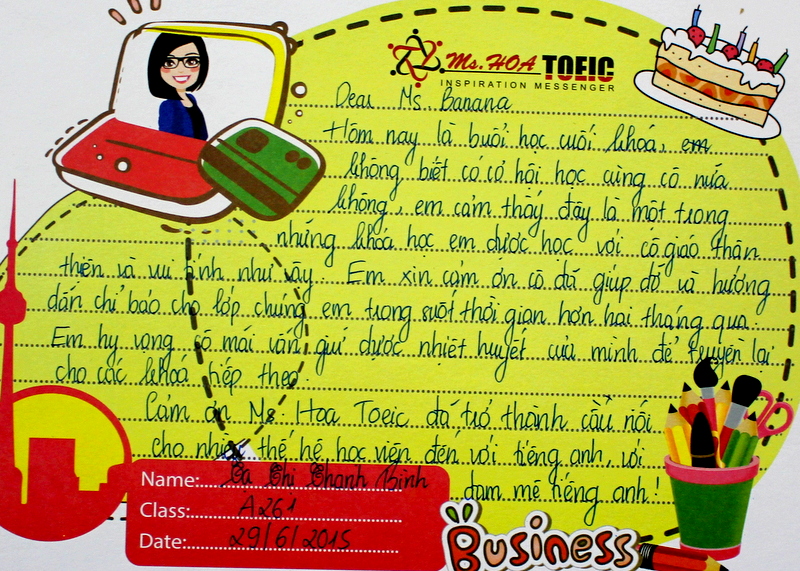 Ms. HOA TOEIC
INSPIRATION MESSENGER
Dear Ms. Banana
Hôm nay là buổi học cuối khoá, em
không biết có cơ hội học cùng cô nữa
không, em cảm thấy đây là một trong
những khoá học em được học với cô giáo thân
thiện và vui tính như vậy. Em xin cảm ơn cô đã giúp đỡ và hướng
dẫn chỉ bảo cho lớp chúng em trong suốt thời gian hơn hai tháng qua.
Em hy vọng cô mãi vẫn giữ được nhiệt huyết của mình để truyền lại
cho các khoá tiếp theo.
Cảm ơn Ms. Hoa Toeic đã trở thành cầu nối
cho nhiều thế hệ học viên đến với tiếng anh, với
đam mê tiếng anh!
Name: Thị Thanh Bình
Class: A261
Date: 29/6/2015
Business